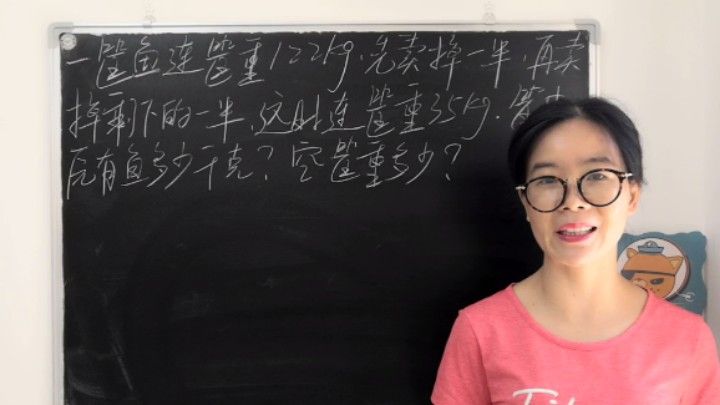 一筐鱼连筐重122kg.先卖掉一半,再卖
掉剩下的一半,这时连筐重35kg.筐
原有鱼多少千克?空筐重多少?